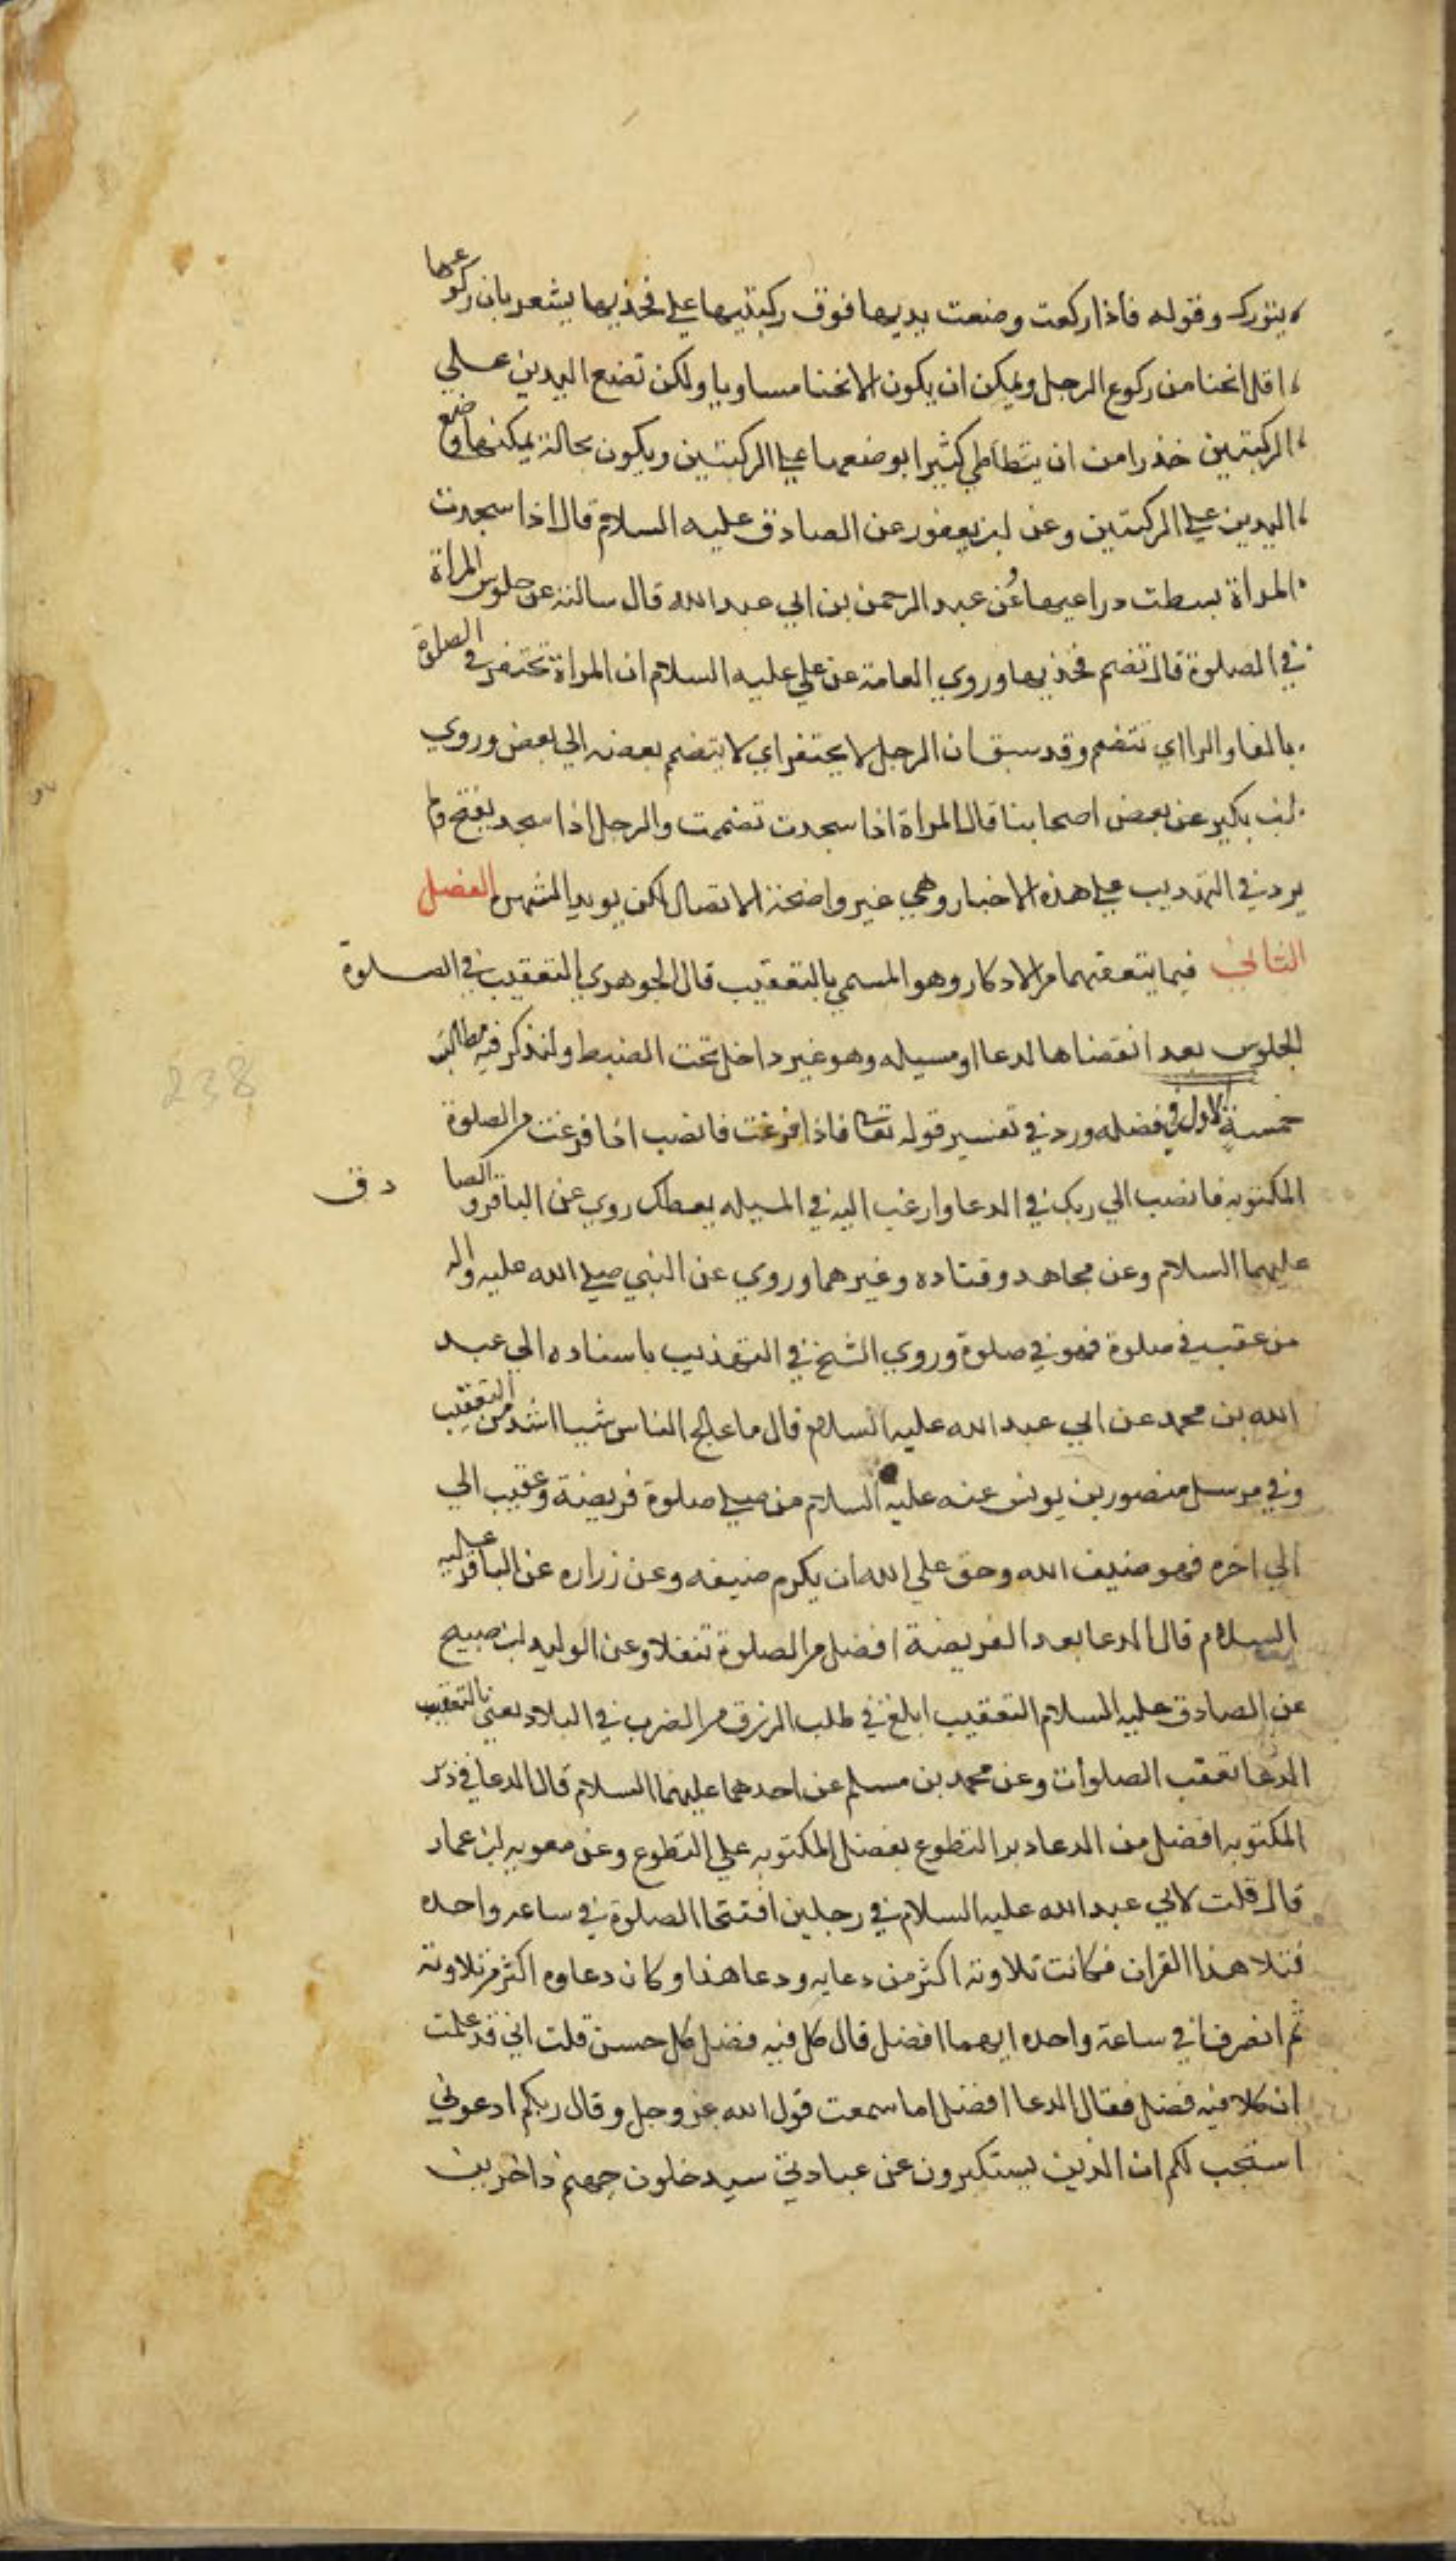 يتورك وقوله فاذا ركعت وضعت يديها فوق ركبتيها علي فخذيها يشعر بان ركوعها
اقل انحنا من ركوع الرجل ويمكن ان يكون الانحنا مساويا ولكن تضع اليدين علي
الركبتين حذرا من ان يتطاطي كثيرا بوضعهما علي الركبتين ويكون بحالة يمكنها وضع
اليدين علي الركبتين وعن ابن يعفور عن الصادق عليه السلام قال اذا سجدت
المراة بسطت دراعيها وعن عبد الرحمن بن ابي عبد الله قال سالته عن جلوس المراة
في الصلوة قال تضم فخذيها وروي العامة عن علي عليه السلام ان المراة تحتفز في الصلوة
بالفا والرا اي تتضم وقد سبق ان الرجل لا يحتفز اي لا يتضم بعضه الي بعض وروي
ابن بكير عن بعض اصحابنا قال المراة اذا سجدت تضممت والرجل اذا سجد يفتح ولم
يرد في التهذيب علي هذه الاخبار وهي غير واضحة الاتصال لكن يويد الشهرة الفصل
الثاني فيما يتعقبهما من الاذكار وهو المسمي بالتعقيب قال الجوهري التعقيب في الصلوة
الجلوس بعد انقضاها لدعا او مسيله وهو غير داخل تحت الضبط ولنذكر فيه مطالب
خمسة الاول في فضله ورد في تفسير قوله تعالى فاذا فرغت فانصب اذا فرغت من الصلوة
المكتوبه فانصب الي ربك في الدعا وارغب اليه في المسيله يعطك روي عن الباقر والصادق
عليهما السلام وعن مجاهد وقتاده وغيرهما وروي عن النبي صلي الله عليه واله
من عقب في صلوة فهو في صلوة وروي الشيخ في التهذيب باسناده الي عبد
الله بن محمد عن ابي عبد الله عليه السلام قال ما عالج الناس شيا اشد من التعقيب
وفي مرسل منصور بن يونس عنه عليه السلام من صلي صلوة فريضة وعقب الي
الي اخره فهو ضيف الله وحق علي الله ان يكرم ضيفه وعن زراره عن الباقر عليه
السلام قال الدعا بعد الفريضة افضل من الصلوة تنفلا وعن الوليد ابن صبيح
عن الصادق عليه السلام التعقيب ابلغ في طلب الرزق من الضرب في البلاد يعني بالتعقيب
الدعا تعقب الصلوات وعن محمد بن مسلم عن احدهما عليهما السلام قال الدعا في دبر
المكتوبه افضل من الدعا دبر التطوع بفضل المكتوبه علي التطوع وعن معويه ابن عمار
قال قلت لابي عبد الله عليه السلام في رجلين افتتحا الصلوة في ساعه واحده
فتلا هذا القران فكانت تلاوته اكثر من دعايه ودعا هذا وكان دعاوه اكثر من تلاوته
ثم انصرفا في ساعة واحده ايهما افضل قال كل فيه فضل كل حسن قلت اني قد علمت
ان كلا فيه فضل فقال الدعا افضل اما سمعت قول الله عز وجل وقال ربكم ادعوني
استجب لكم ان الذين يستكبرون عن عبادتي سيدخلون جهنم داخرين
238